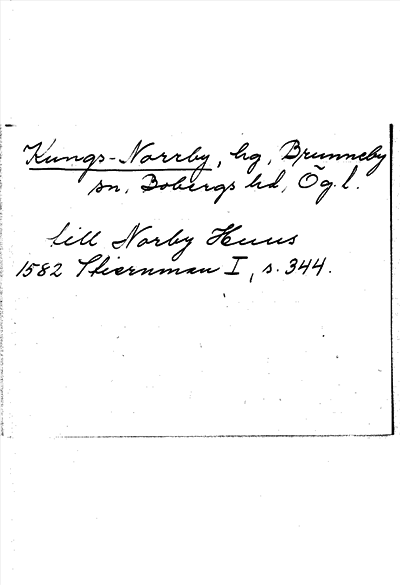 Kungs-Norrby, hg, Brunneby
sn, Bobergs hd, Ög. l.
till Norby Huus
1582 Stiernman I, s. 344.